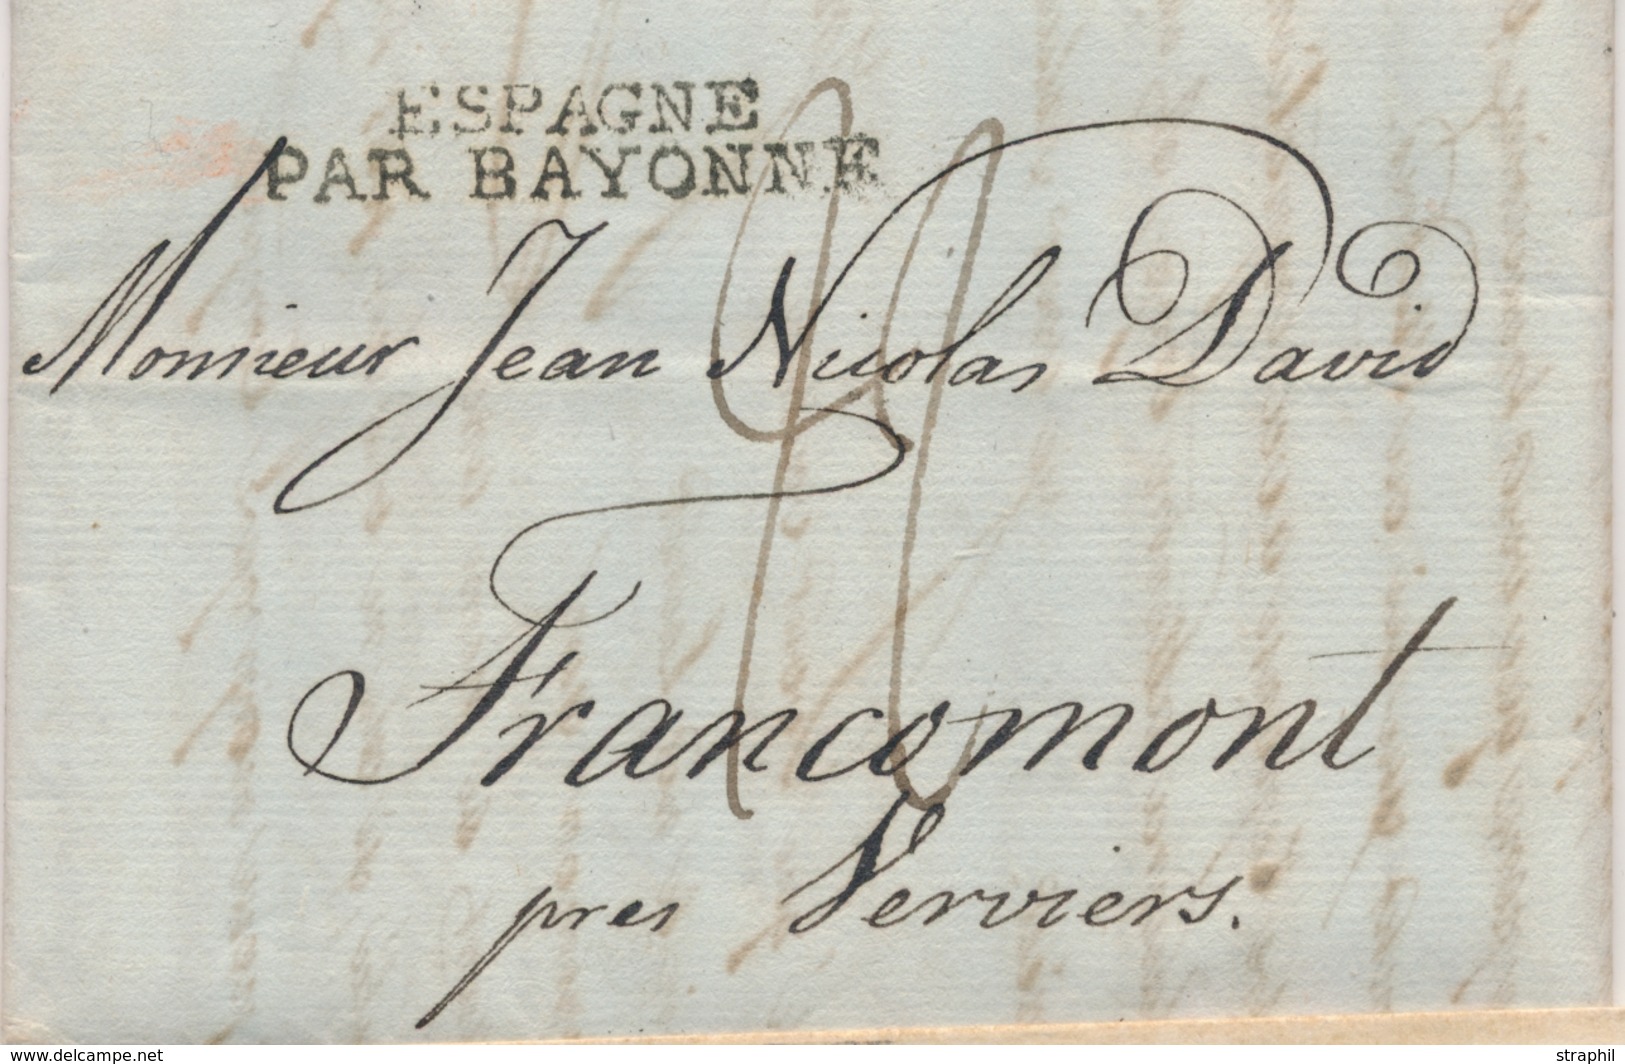 ESPAGNE
PAR BAYONNE
Monsieur Jean Nicolas David
Francomont
pres Verviers.
www.delcampe.net
straphil